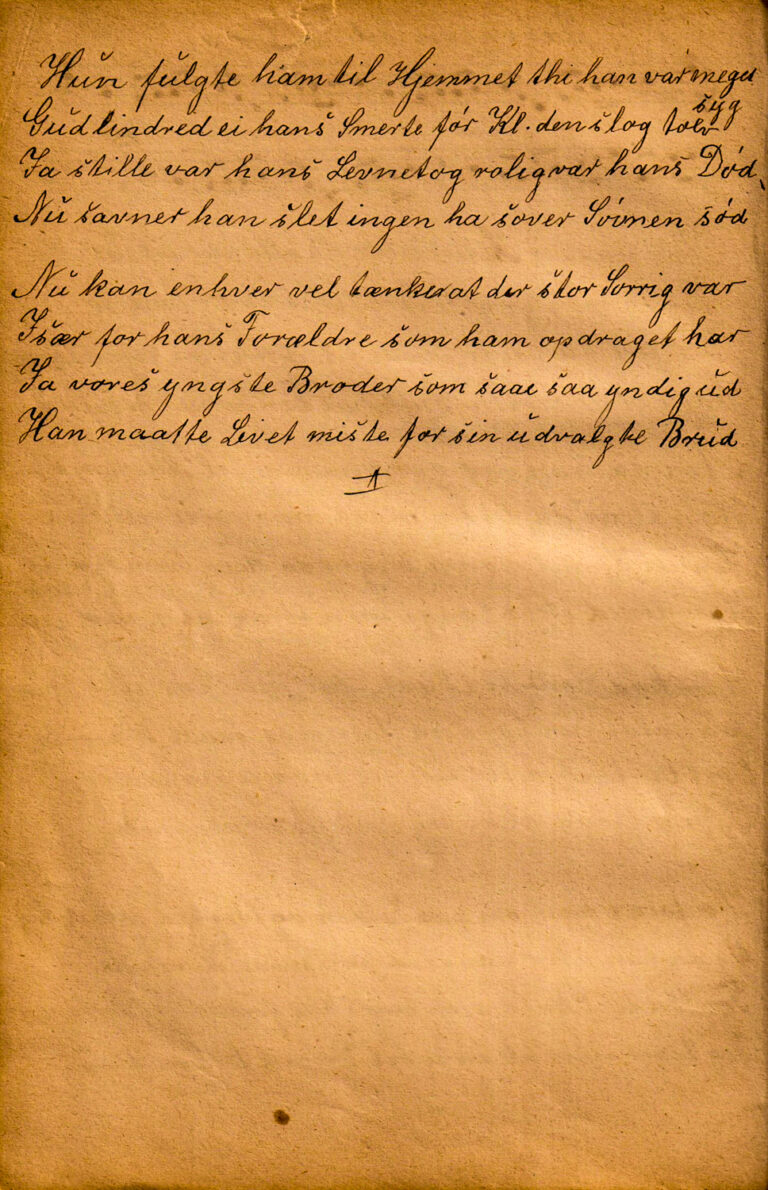 Hun fulgte ham til Hjemmet thi han var meget
syg
Gud lindred ei hans Smerte før Kl. den slog tolv
Ja stille var hans Levnet og rolig var hans Død
Nu savner han slet ingen ha sover Søvnen sød
Nu kan enhver vel tænke at der stor Sorrig var
Især for hans Forældre som ham opdraget har
Ja vores yngste Broder som saae saa yndig ud
Han maatte Livet miste for sin udvalgte Brud